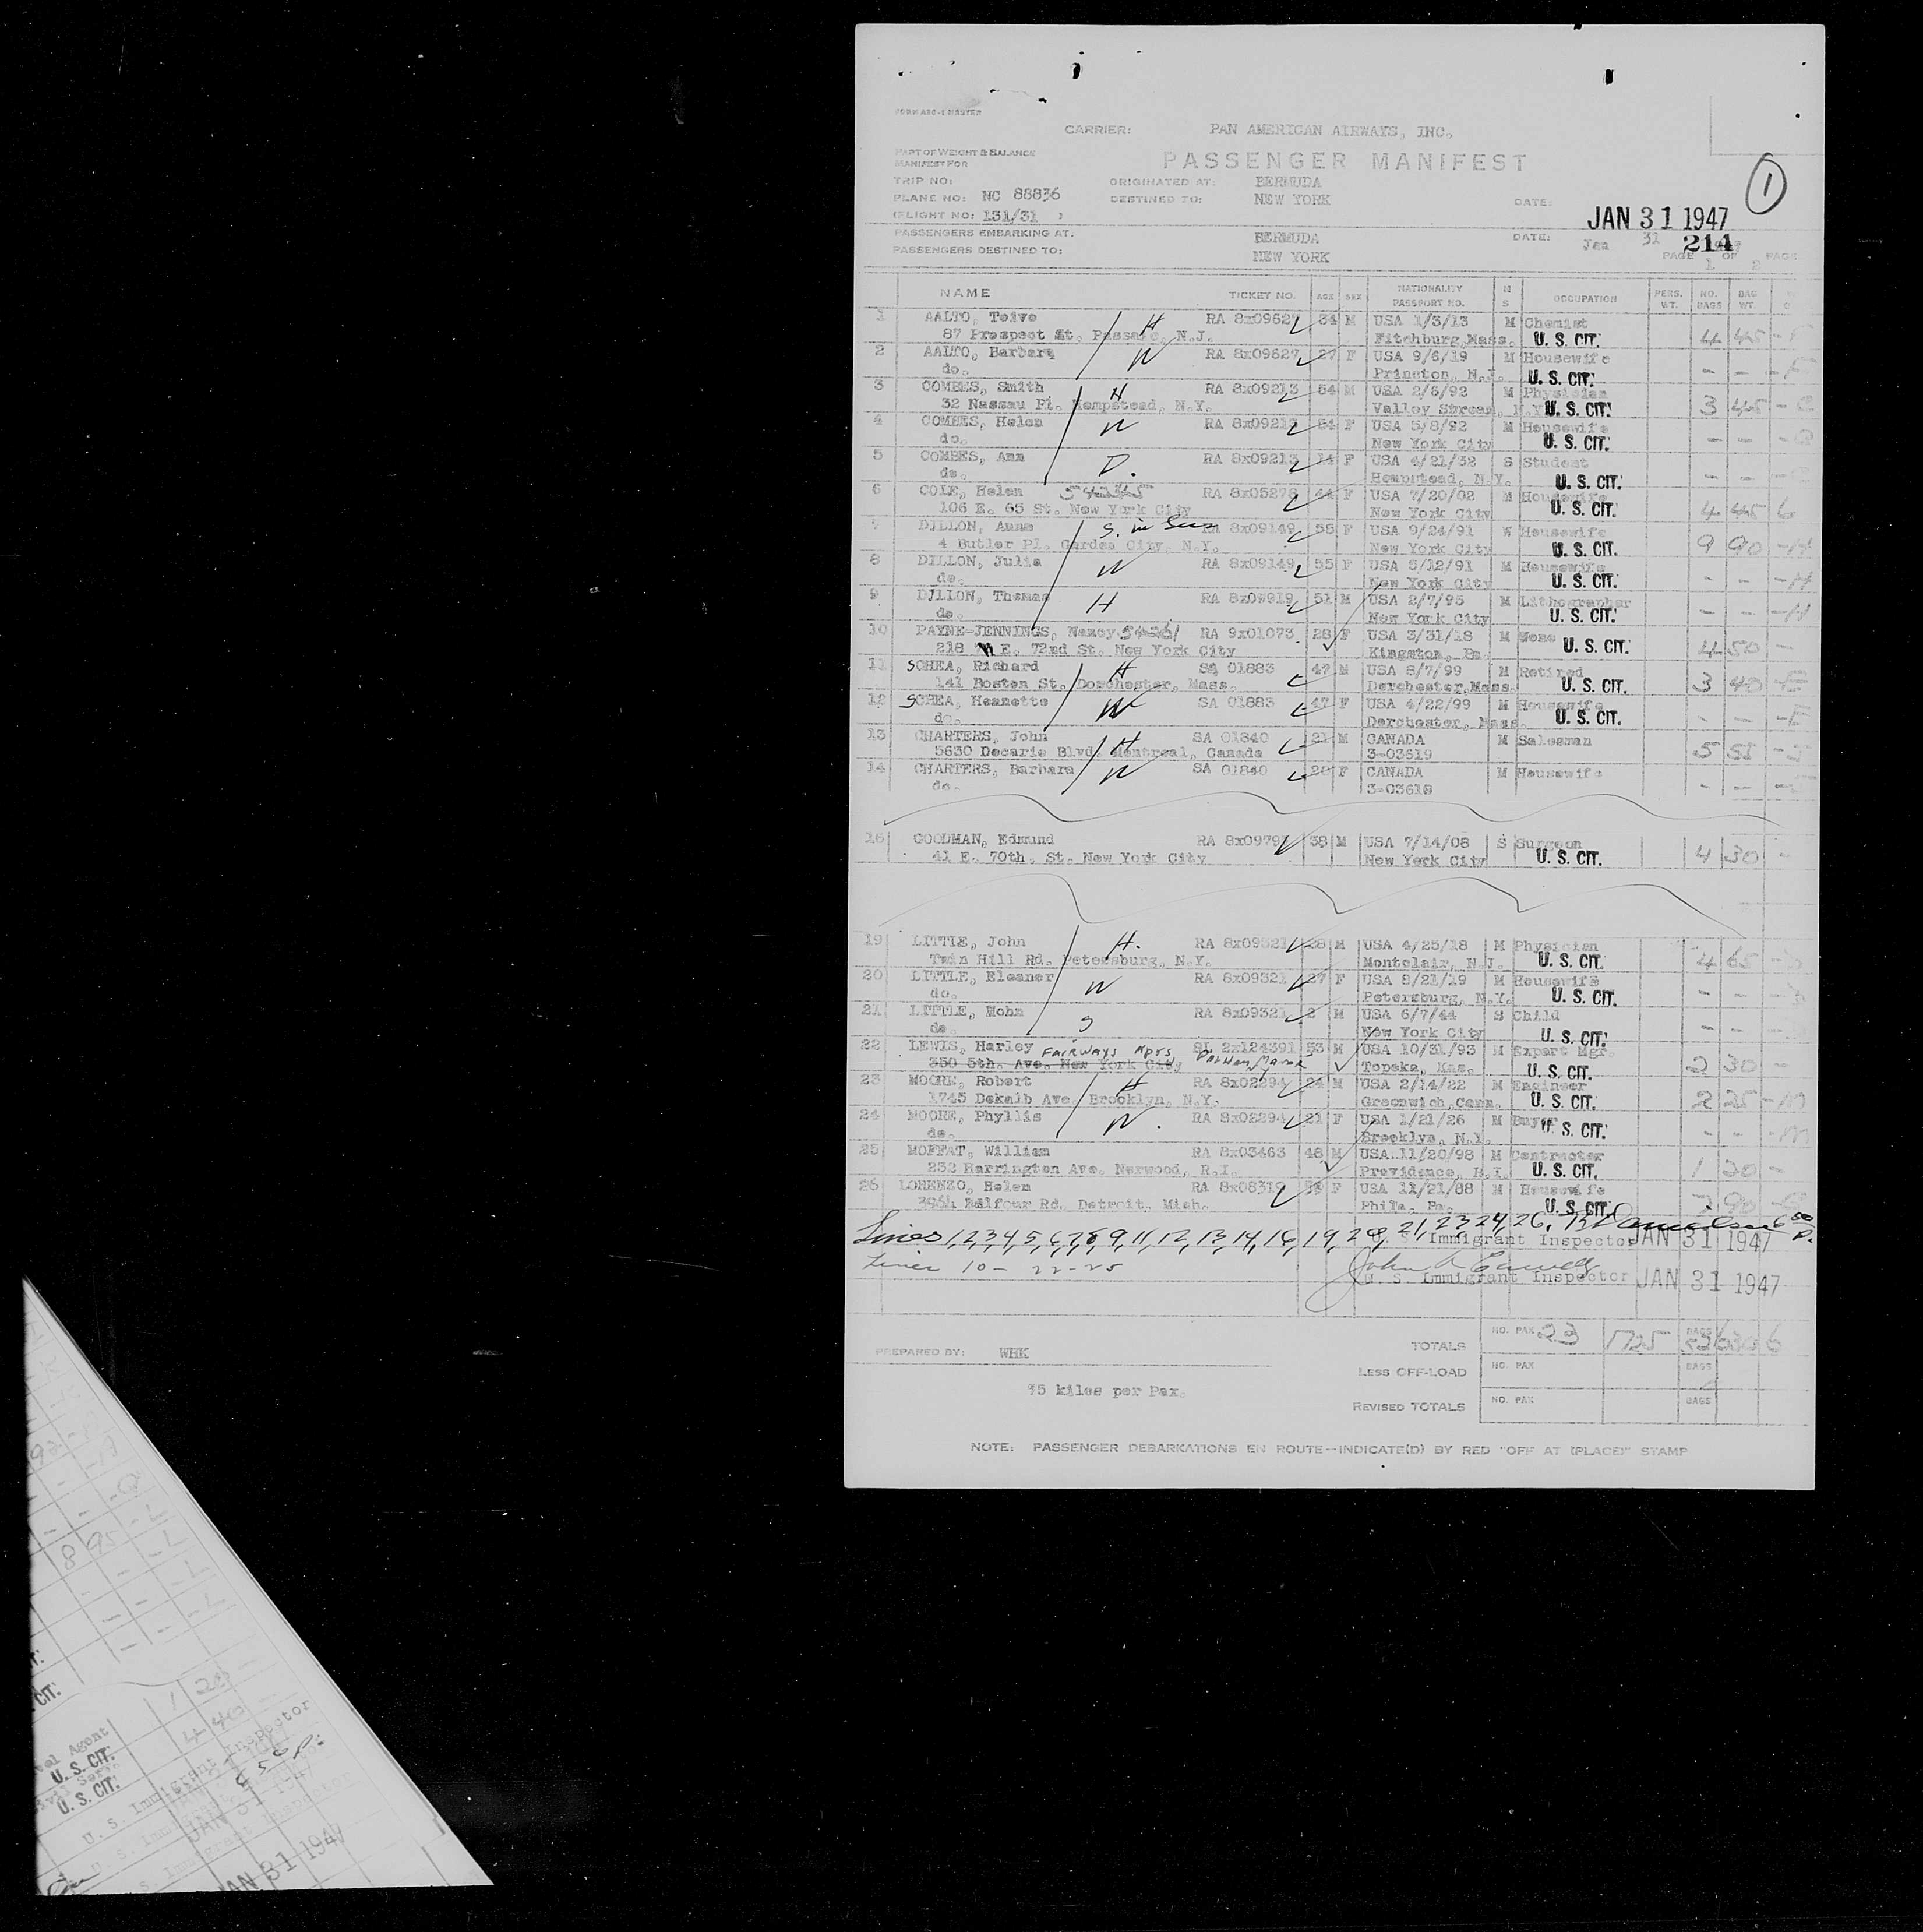 FORM ABC-1 MASTER
CARRIER: PAN AMERICAN AIRWAYS, INC.
PART OF WEIGHT & BALANCE
MANIFEST FOR
PASSENGER MANIFEST
1
TRIP NO: ORIGINATED AT: BERMUDA
PLANE NO: NC 88836 DESTINED TO: NEW YORK DATE: JAN 31 1947
(FLIGHT NO: 131/31 )
PASSENGERS EMBARKING AT. BERMUDA DATE: Jan 31 214
PASSENGERS DESTINED TO: NEW YORK PAGE 1 OF 2 PAGE
NAME TICKET NO. AGE SEX NATIONALITY PASSPORT NO. M S OCCUPATION PERS. WT. NO. BAGS BAG WT.
1 AALTO, Toivo H RA 8x09627 34 M USA 1/3/13 M Chemist
87 Prospect St. Passaic, N.J. Fitchburg,Mass. U. S. CIT. 4 45
2 AALTO, Barbara W RA 8x09627 27 F USA 9/6/19 M Housewife
do. Princton, N.J. U. S. CIT. - -
3 COMBES, Smith H RA 8x09213 54 M USA 2/6/92 M Physician
32 Nassau Pl. Hempstead, N.Y. Valley Stream, N.Y. U. S. CIT. 3 45
4 COMBES, Helen W RA 8x09213 54 F USA 5/8/92 M Housewife
do. New York City U. S. CIT. - -
5 COMBES, Ann D. RA 8x09213 14 F USA 4/21/32 S Student
do. Hempstead, N.Y. U. S. CIT. - -
6 COLE, Helen RA 8x05278 44 F USA 7/20/02 M Housewife
106 E. 65 St. New York City New York City U. S. CIT. 4 45 6
7 DILLON, Anna S. in RA 8x09149 55 F USA 9/24/91 W Housewife
4 Butler Pl. Garden City, N.Y. New York City U. S. CIT. 9 90 -H
8 DILLON, Julia W RA 8x09149 55 F USA 5/12/91 M Housewife
do. New York City U. S. CIT. - - -H
9 DILLON, Thomas H RA 8x09919 51 M USA 2/7/95 M Lithographer
do. New York City U. S. CIT. - - -H
10 PAYNE-JENNINGS, Nancy 54261 RA 9x01073 28 F USA 3/31/18 M None
218 E. 72nd St. New York City Kingston, Pa. U. S. CIT. 4 50 -
11 SCHEA, Richard H SA 01883 47 M USA 8/7/99 M Retired
141 Boston St. Dorchester, Mass. Dorchester,Mass. U. S. CIT. 3 40
12 SCHEA, Heanette W SA 01883 47 F USA 4/22/99 M Housewife
do. Dorchester, Mass. U. S. CIT. - -
13 CHARTERS, John H SA 01840 21 M CANADA M Salesman
5630 Decarie Blvd. Montreal, Canada 3-03619 5 55
14 CHARTERS, Barbara W SA 01840 20 F CANADA M Housewife
do. 3-03618 - -
16 GOODMAN, Edmund RA 8x09797 38 M USA 7/14/08 S Surgeon
41 E. 70th. St. New York City New York City U. S. CIT. 4 30 -
19 LITTLE, John H. RA 8x09321 28 M USA 4/25/18 M Physician
Twin Hill Rd. Petersburg, N.Y. Montclair, N.J. U. S. CIT. 4 65
20 LITTLE, Eleaner W RA 8x09321 27 F USA 8/21/19 M Housewife
do. Petersburg, N.Y. U. S. CIT. - -
21 LITTLE, Mohn S RA 8x09321 2 M USA 6/7/44 S Child
do. New York City U. S. CIT. - -
22 LEWIS, Harley FAIRWAYS APTS SL 2x124391 53 M USA 10/31/93 M Export Mgr.
350 5th. Ave. New York City Topeka, Kas. U. S. CIT. 2 30 -
23 MOORE, Robert H RA 8x02294 24 M USA 2/14/22 M Engineer
1745 Dekalb Ave. Brooklyn, N.Y. Greenwich,Conn. U. S. CIT. 2 25 -M
24 MOORE, Phyllis W. RA 8x02294 21 F USA 1/21/26 M Buyer
do. Brooklyn, N.Y. U. S. CIT. - - -M
25 MOFFAT, William RA 8x03463 48 M USA 11/20/98 M Contractor
232 Harrington Ave. Norwood, R.I. Providence, R.I. U. S. CIT. 1 20 -
26 LORENZO, Helen RA 8x08319 58 F USA 11/21/88 M Housewife
3964 Balfour Rd. Detroit, Mich. Phila. Pa. U. S. CIT.
Lines 1,2,3,4,5,6,7,8,9,11,12,13,14,16,19,20,21,23,24,26,
U. S. Immigrant Inspector JAN 31 1947
Lines 10- 22-25
U. S. Immigrant Inspector JAN 31 1947
TOTALS NO. PAX 23 1725 BAGS 52 630 6
PREPARED BY: WHK
LESS OFF-LOAD NO. PAX BAGS
75 kilos per Pax.
REVISED TOTALS NO. PAX BAGS
NOTE: PASSENGER DEBARKATIONS EN ROUTE--INDICATE(D) BY RED "OFF AT (PLACE)" STAMP
92
8 95 -L
-L
-L
CIT.
1 20
4 40
Agent
U. S. CIT.
U. S. CIT.
U. S. Immigrant Inspector
JAN 31 1947